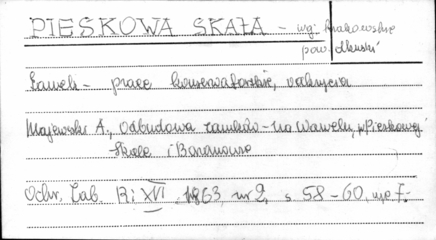 PIESKOWA SKAŁA - woj. krakowskie
pow. olkuski
Zamek - prace konserwatorskie, odkrycia
Majewski A., Odbudowa zamków - na Wawelu, w Pieskowej
Skale i Baranowie
Ochr. Zab. R: XVI, 1963, nr 2, s. 58-60,